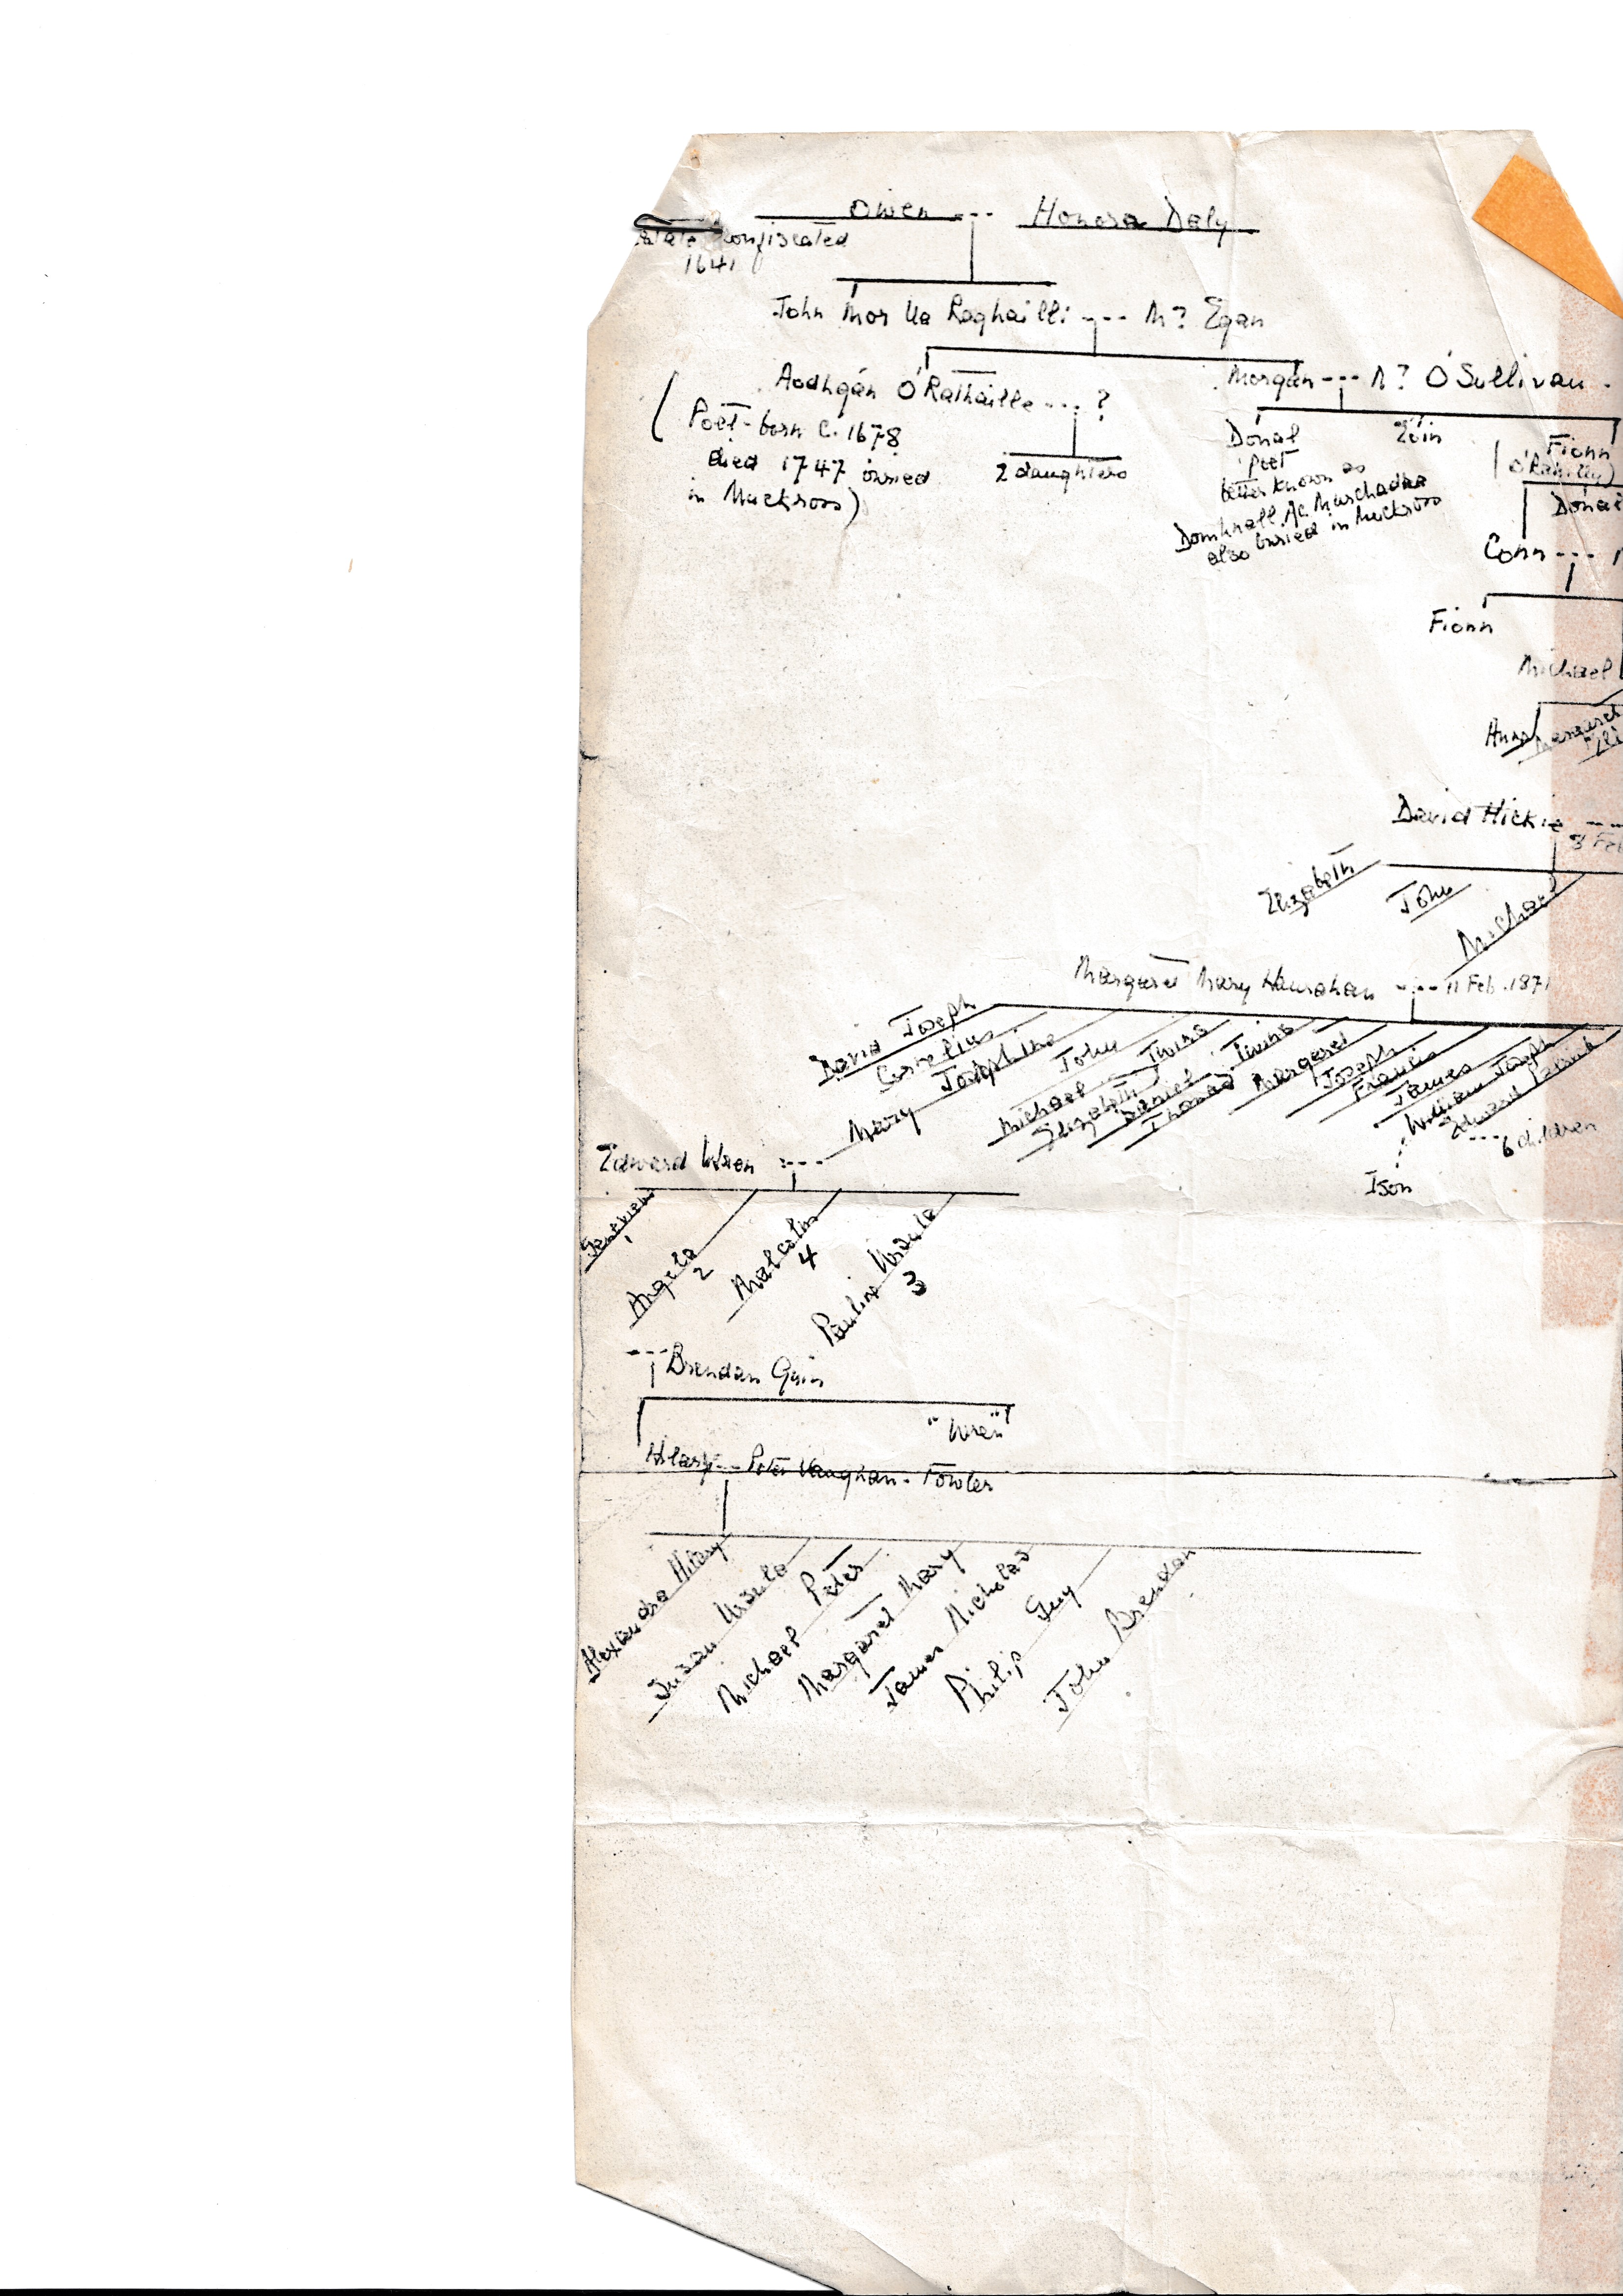 Owen --- Honora Daly
Estate Confiscated
1641
John Mor Ua Raghailli --- M? Egan
Aodhgán O'Rathaille --- ?
(Poet - born C. 1678
died 1747 buried
in Muckross)
2 daughters
Morgan --- M? O'Sullivan
Donal
Poet
better known as
Domhnall Mc Murchadha
also buried in Muckross
Eóin
Fionn
(O'Rahilly)
Donal
Conn ---
Fionn
Michael
Anna
Margaret
David Hickie ---
8 Feb
Elizabeth
John
Michael
Margaret Mary Hanrahan --- 11 Feb. 1871
David Joseph
Cornelius
Mary Josephine
John
Michael
Elizabeth Twins
Daniel
Thomas Twins
Margaret
Joseph
Francis
James
William Joseph
Edward Patrick
--- 6 children
1 son
Edward Wren ---
1
Angela
2
Malcolm
4
Pauline Ursula
3
--- Brendan Quin
"Wren"
Hilary --- Peter Vaughan-Fowler
Alexandra Hilary
Susan Ursula
Michael Peter
Margaret Mary
James Nicholas
Philip Guy
John Brendan